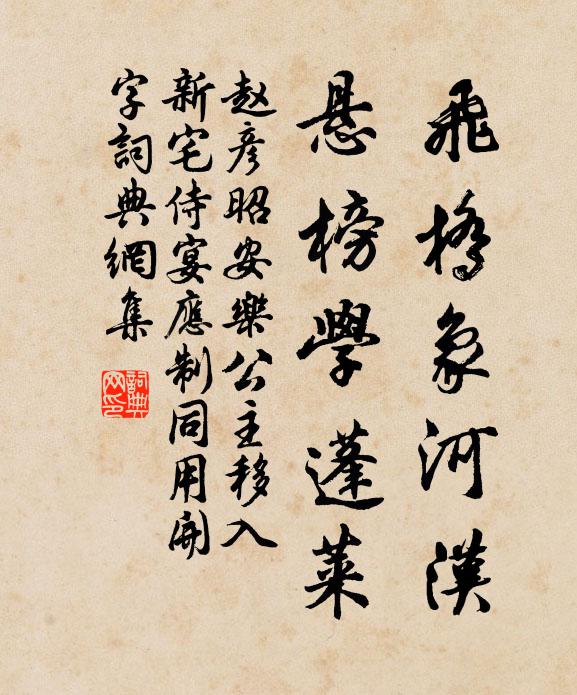 飛橋象河漢
悬榜學蓬萊
赵彦昭安樂公主移入
新宅侍宴應制同用開
字詞典網集
詞典
网印